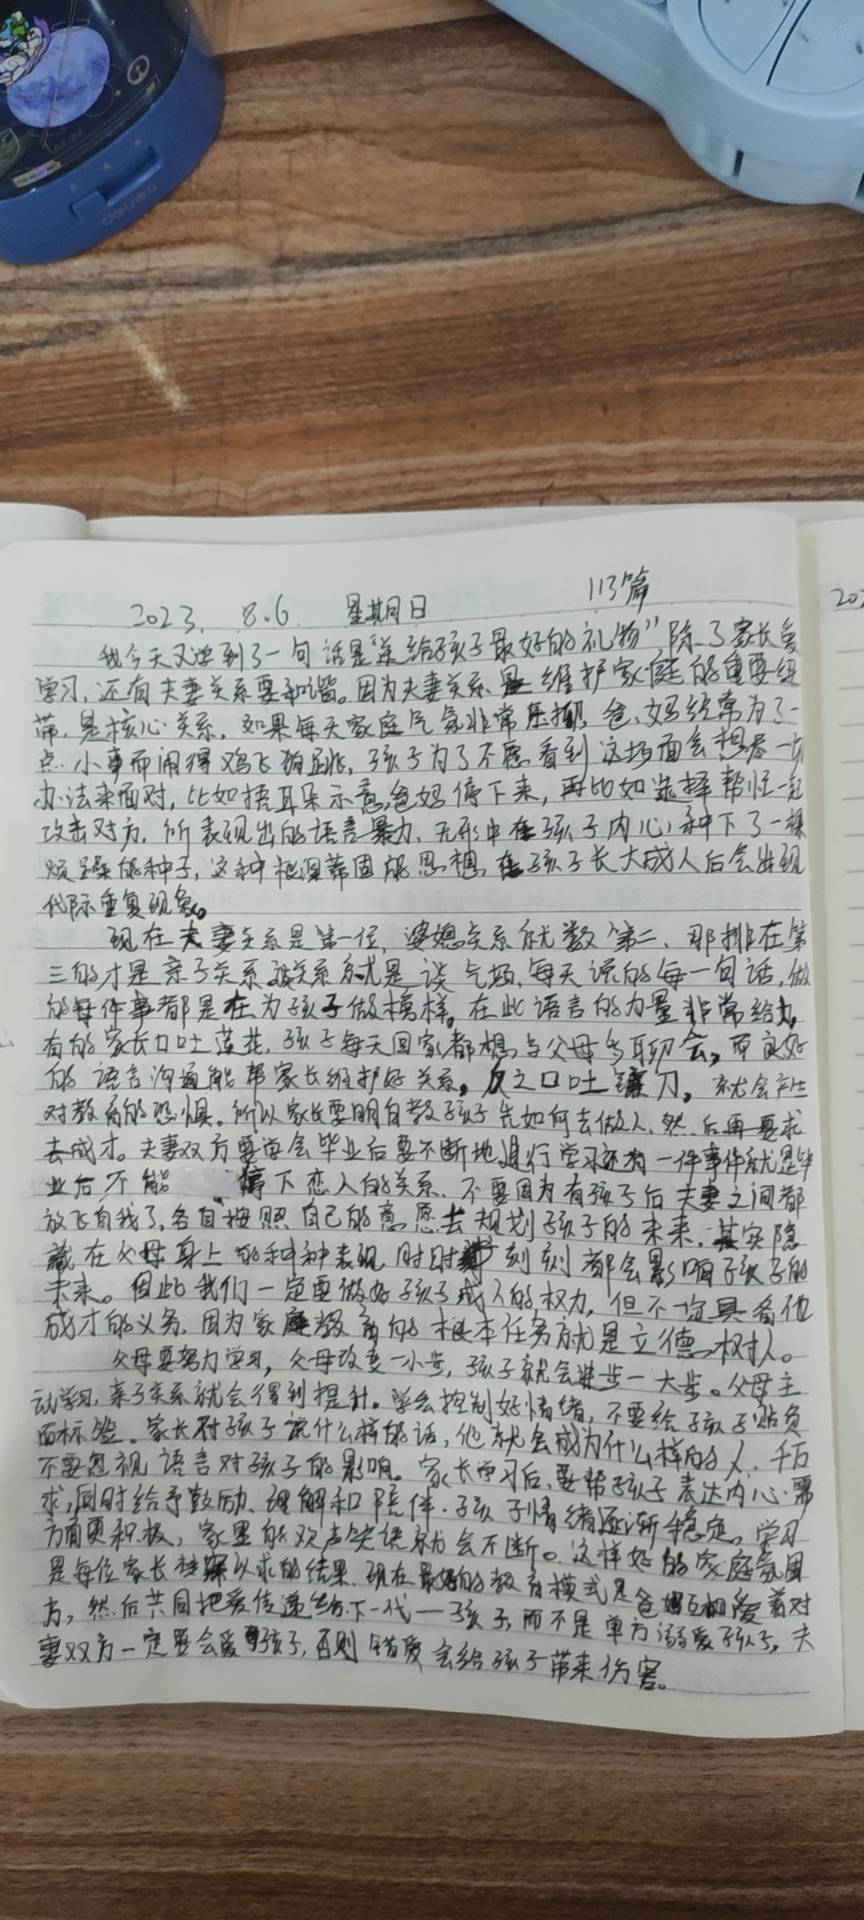 2023. 8.6 星期日 113篇
我今天又学到了一句话是“送给孩子最好的礼物”，除了家长爱
学习，还有夫妻关系要和谐。因为夫妻关系是维护家庭的重要纽
带，是核心关系，如果每天家庭气氛非常压抑，爸、妈经常为了一
点小事而闹得鸡飞狗跳，孩子为了不愿看到这场面会想尽一切
办法来面对，比如捂耳朵示意爸妈停下来，再比如选择帮忙一起
攻击对方，所表现出的语言暴力，无形中在孩子内心种下了一棵
烦躁的种子，这种根深蒂固的思想，在孩子长大成人后会出现
代际重复现象。
现在夫妻关系是第一位，婆媳关系就数第二，那排在第
三的才是亲子关系，该关系就是谈气场，每天说的每一句话，做
的每件事都是在为孩子做榜样。在此语言的力量非常给力，
有的家长口吐莲花，孩子每天回家都想与父母多聊会，而良好
的语言沟通能帮家长维护好关系，反之口吐镰刀，就会产生
对教育的恐惧。所以家长要明白教孩子先如何去做人，然后再要求
去成才。夫妻双方要学会毕业后要不断地进行学习还有一件事件就是毕
业后不能 停下恋人的关系，不要因为有孩子后夫妻之间都
放飞自我了，各自按照自己的意愿去规划孩子的未来，其实隐
藏在父母身上的种种表现时时刻刻都会影响孩子的
未来。因此我们一定要做好孩子成人的权力，但不一定具备他
成才的义务，因为家庭教育的根本任务就是立德树人。
父母要努力学习，父母改变一小步，孩子就会进步一大步。父母主
动学习，亲子关系就会得到提升。学会控制好情绪，不要给孩子贴负
面标签。家长对孩子说什么样的话，他就会成为什么样的人，千万
不要忽视语言对孩子的影响。家长学习后，要帮孩子表达内心需
求，同时给予鼓励、理解和陪伴，孩子情绪逐渐稳定，学习
方面更积极，家里的欢声笑语就会不断。这样好的家庭氛围
是每位家长梦寐以求的结果，现在最好的教育模式是爸妈互相爱着对
方，然后共同把爱传递给下一代——孩子，而不是单方溺爱孩子，夫
妻双方一定要会爱孩子，否则错爱会给孩子带来伤害。